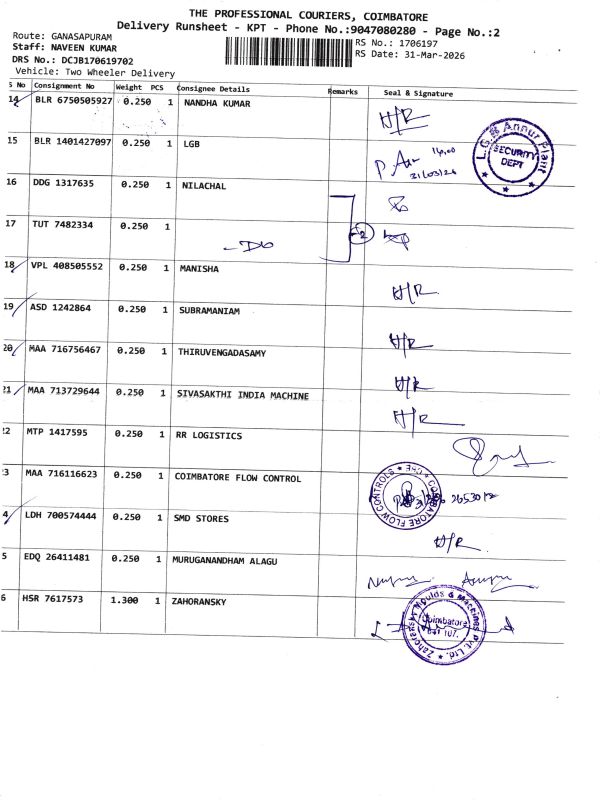 THE PROFESSIONAL COURIERS, COIMBATORE
Delivery Runsheet - KPT - Phone No.:9047080280 - Page No.:2
Route: GANASAPURAM
RS No.: 1706197
Staff: NAVEEN KUMAR
RS Date: 31-Mar-2026
DRS No.: DCJB170619702
Vehicle: Two Wheeler Delivery
S No Consignment No Weight PCS Consignee Details Remarks Seal & Signature
14 BLR 6750505927 0.250 1 NANDHA KUMAR H/R
15 BLR 1401427097 0.250 1 LGB 31/03/26
L.G.B Annur Plant
SECURITY
DEPT
16 DDG 1317635 0.250 1 NILACHAL
17 TUT 7482334 0.250 1 -Do 2
18 VPL 408505552 0.250 1 MANISHA H/R
19 ASD 1242864 0.250 1 SUBRAMANIAM H/R
20 MAA 716756467 0.250 1 THIRUVENGADASAMY H/R
21 MAA 713729644 0.250 1 SIVASAKTHI INDIA MACHINE H/R
22 MTP 1417595 0.250 1 RR LOGISTICS
3 MAA 716116623 0.250 1 COIMBATORE FLOW CONTROL
COIMBATORE FLOW CONTROLS * CBE *
4 LDH 700574444 0.250 1 SMD STORES H/R
5 EDQ 26411481 0.250 1 MURUGANANDHAM ALAGU
6 HSR 7617573 1.300 1 ZAHORANSKY
Zahoransky Moulds & Machines Pvt. Ltd.
Coimbatore
641 107.